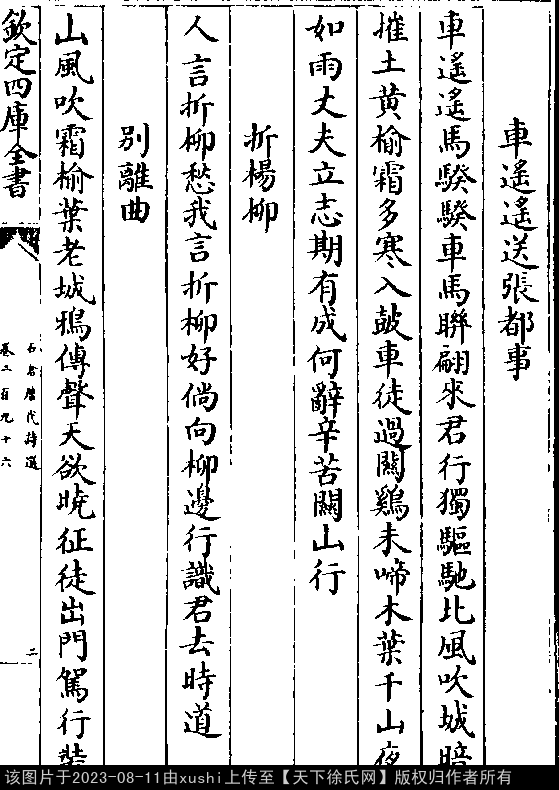 車遙遙送張都事
車遙遙馬騤騤車馬聨翩來君行獨驅馳北風吹城暗
摧土黄榆霜多寒入皷車徒過關鷄未啼木葉千山夜
如雨丈夫立志期有成何辭辛苦關山行
折楊柳
人言折柳愁我言折柳好倘向柳邊行識君去時道
别離曲
山風吹霜榆葉老城鴉傳聲天欲曉征徒出門駕行裝
欽定四庫全書
石倉歷代詩選
卷二百九十六
二
该图片于2023-08-11由xushi上传至【天下徐氏网】版权归作者所有